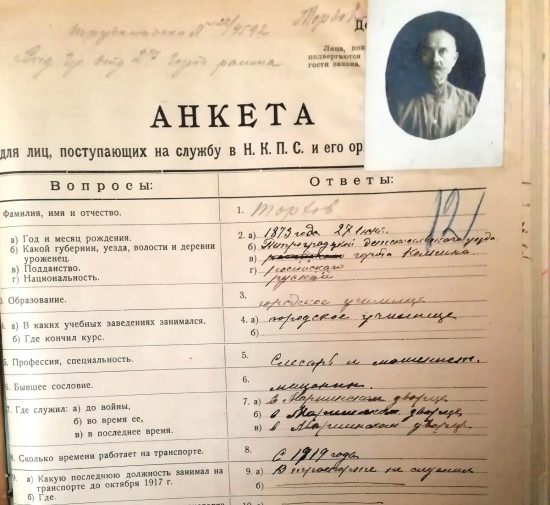 № 22/4592 Торхов
2го Город района
Лица, пон
подвергаются
гости закона.
АНКЕТА
для лиц, поступающих на службу в Н. К. П. С. и его ор
Вопросы: Ответы:
Фамилия, имя и отчество. 1. Торхов
а) Год и месяц рождения. 2. а) 1873 года 27
б) Какой губернии, уезда, волости и деревни б) Петроградской детскосельского уезда
уроженец. города Колпина
в) Подданство. в) российского
г) Национальность. г) руский
3. Образование. 3. городское училище
4. а) В каких учебных заведениях занимался. 4. а) городское училище
б) Где кончил курс. б)
5. Профессия, специальность. 5. Слесарь и машенист.
6. Бывшее сословие. 6. мещанин.
7. Где служил: а) до войны, 7. а) в Мариинском дворце
б) во время ее, б) в Мариинском дворце
в) в последнее время. в) в Мариинском дворце
8. Сколько времени работает на транспорте. 8. С 1919 года
9. а) Какую последнюю должность занимал на 9. а) В транспорте не служил
транспорте до октября 1917 г. б)
б) Где.
121